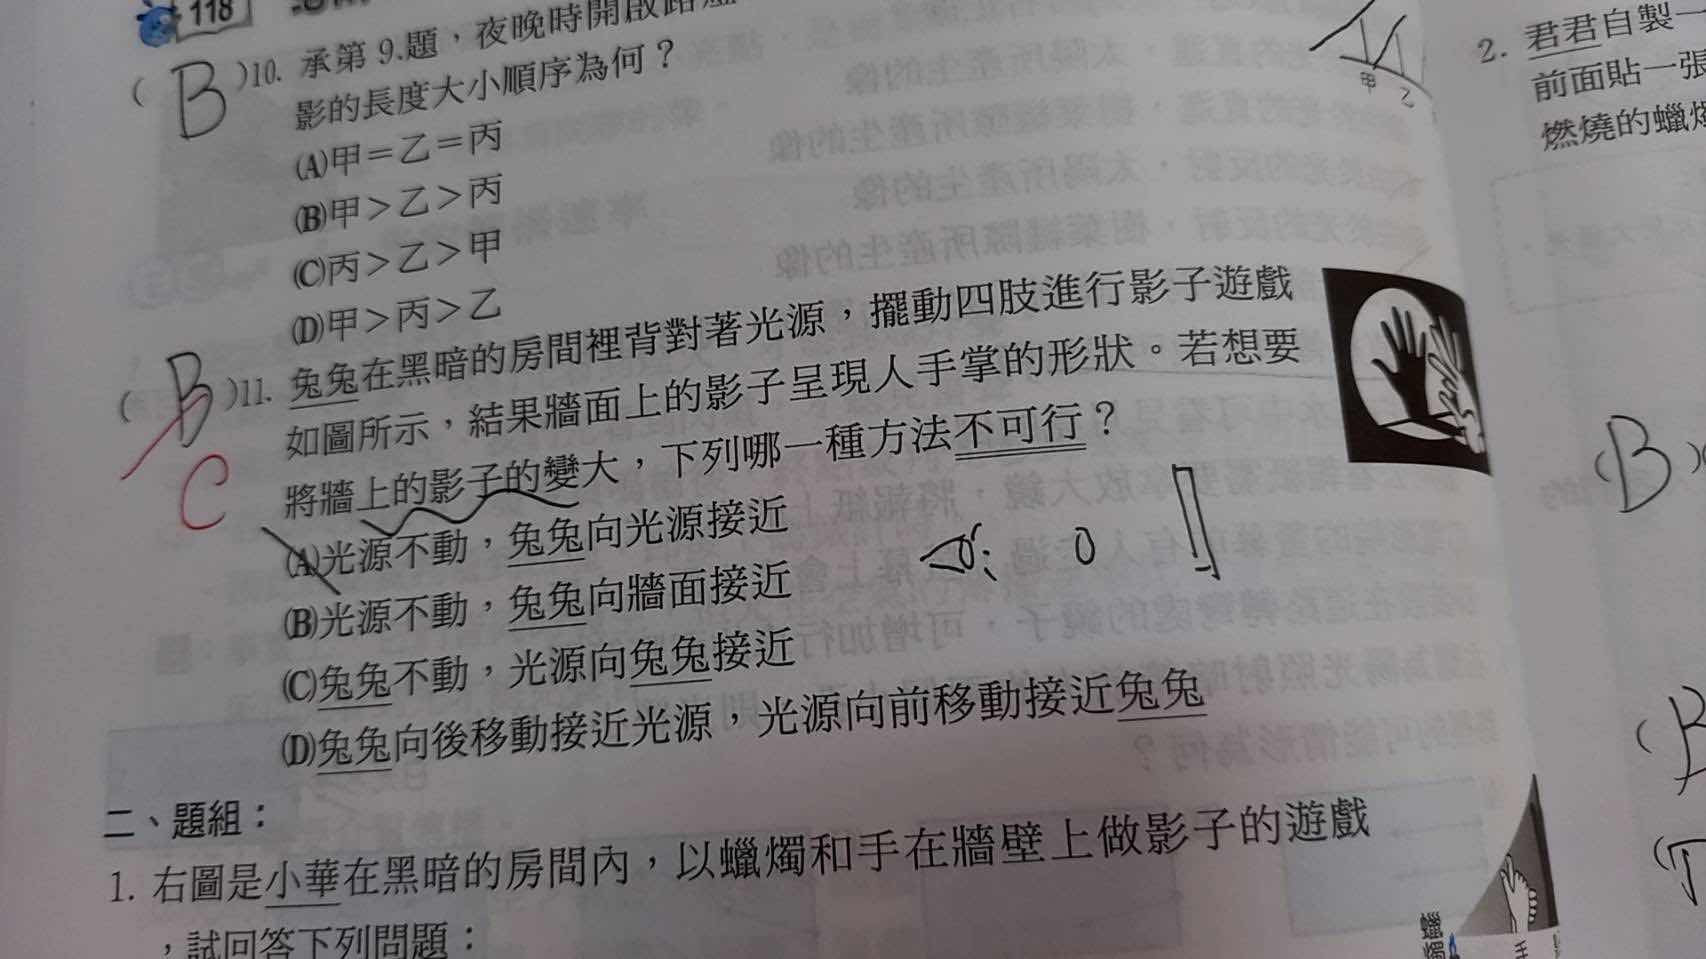 118
(B)10. 承第9.題，夜晚時開啟路
影的長度大小順序為何？
(A)甲＝乙＝丙
(B)甲＞乙＞丙
(C)丙＞乙＞甲
(D)甲＞丙＞乙
(B)11. 兔兔在黑暗的房間裡背對著光源，擺動四肢進行影子遊戲
C
如圖所示，結果牆面上的影子呈現人手掌的形狀。若想要
將牆上的影子的變大，下列哪一種方法不可行？
(A)光源不動，兔兔向光源接近
(B)光源不動，兔兔向牆面接近
(C)兔兔不動，光源向兔兔接近
(D)兔兔向後移動接近光源，光源向前移動接近兔兔
二、題組：
1. 右圖是小華在黑暗的房間內，以蠟燭和手在牆壁上做影子的遊戲
，試回答下列問題：
蠟燭
手
甲 乙
2. 君君自製一
前面貼一張
燃燒的蠟燭
(B)
(B